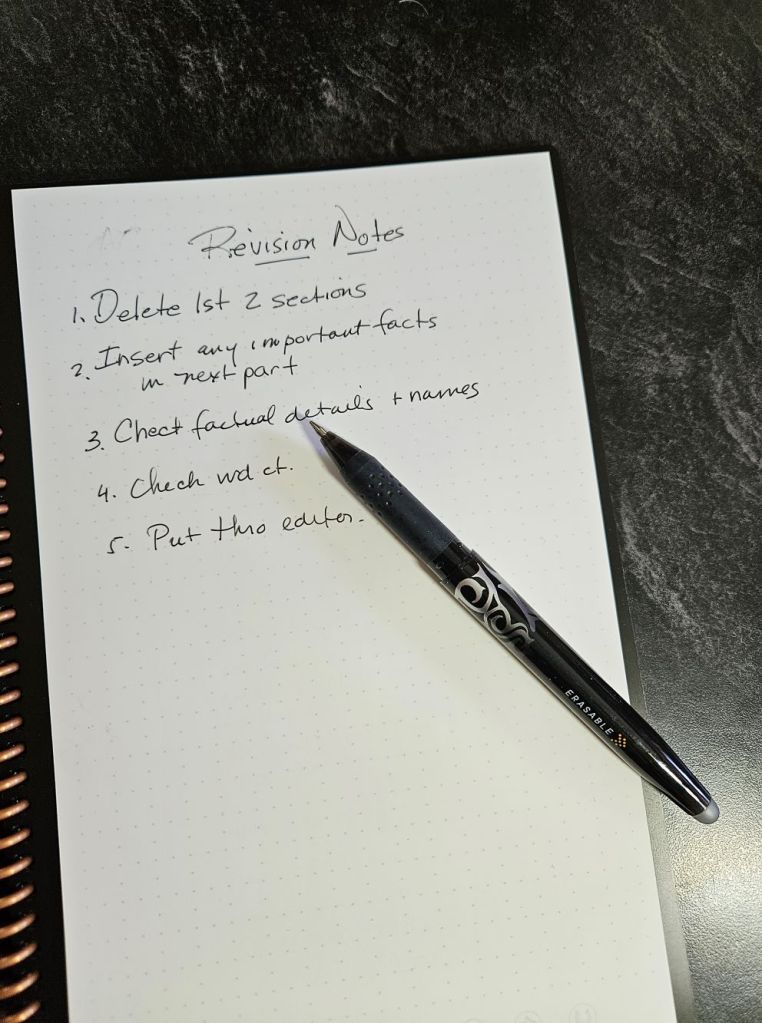 Revision Notes
1. Delete 1st 2 sections
2. Insert any important facts
in next part
3. Check factual details + names
4. Check wd ct.
5. Put thro editor.
ERASABLE